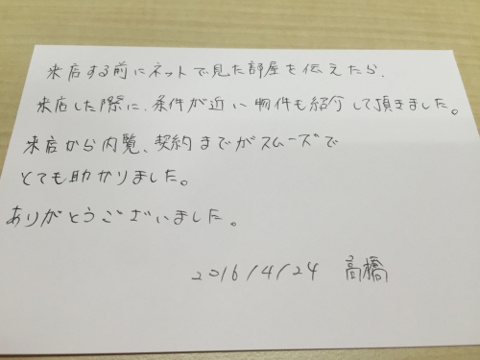 来店する前にネットで見た部屋を伝えたら、
来店した際に、条件が近い物件も紹介して頂きました。
来店から内覧、契約までがスムーズで
とても助かりました。
ありがとうございました。
2016/4/24 高橋